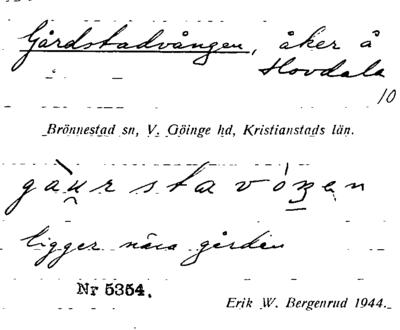 Gårdstadvången, åker å
Hovdala
10
Brönnestad sn, V. Göinge hd, Kristianstads län.
gàu̯r sta vóŋ̲ən
ligger nära gården
Nr 5354.
Erik W. Bergenrud 1944.